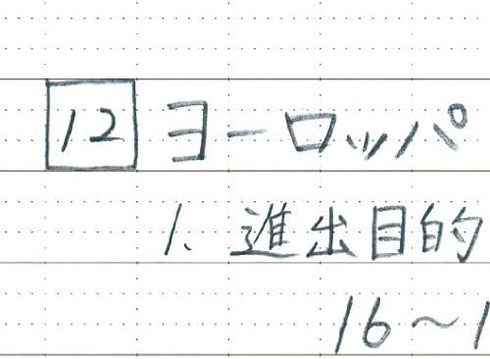 12 ヨーロッパ
1. 進出目的
16〜1